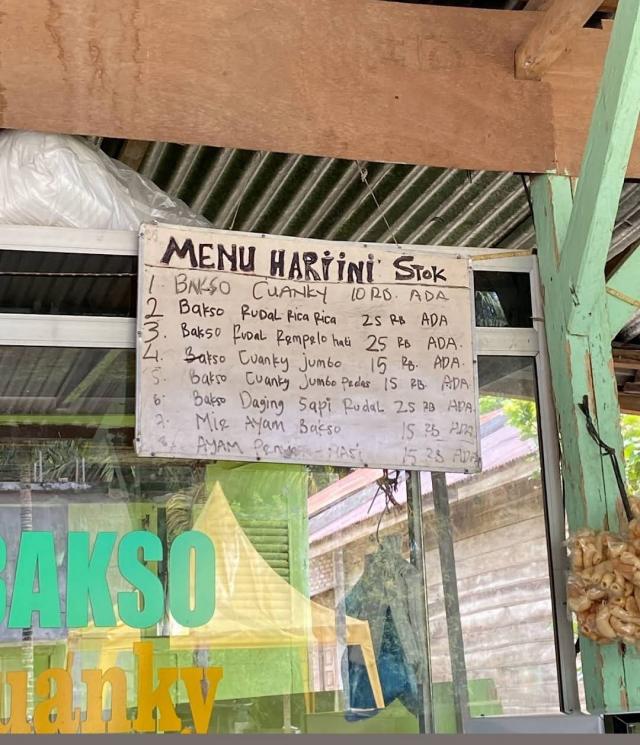 MENU HARI INI STOK
1. BAKSO CUANKY 10 RB. ADA
2 Bakso RUDAL RICA RICA 25 RB ADA
3. Bakso Rudal Rempelo hati 25 RB ADA.
4. Bakso Cuanky jumbo 15 RB. ADA.
5. Bakso Cuanky Jumbo Pedas 15 RB. ADA
6. Bakso Daging Sapi Rudal 25 RB ADA.
7. Mie AYAM BAKSO 15 RB ADA
8. AYAM NASI 15 RB ADA
BAKSO
uanky